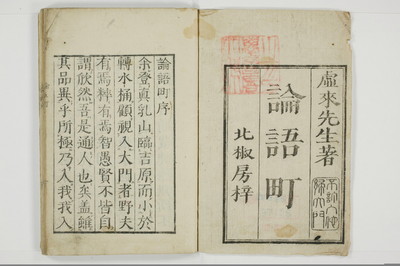 虛來先生著
論語町
北椒房梓
論語町序
余登真乳山臨吉原而小於
轉水桶顧視入大門者野夫
有焉粹有焉智愚賢不皆自
謂欣然吾是通人也矣蓋雖
其品異乎所極乃入我入我